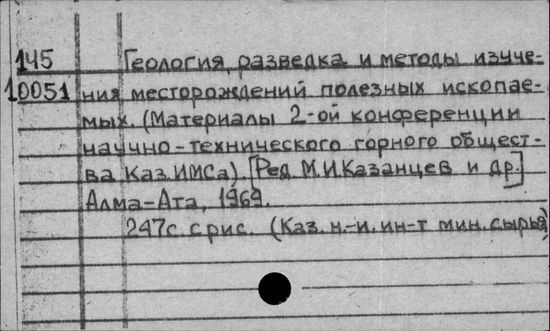 145 Геология, разведка и методы изуче-
10051 ния месторождений полезных ископае-
мых. (Материалы 2-ой конференции
научно-технического горного общест-
ва Каз.ИМСа) [Ред. М.И.Казанцев и др.]
Алма-Ата, 1969.
247с. с рис. (Каз. н.-и. ин-т мин. сырья)